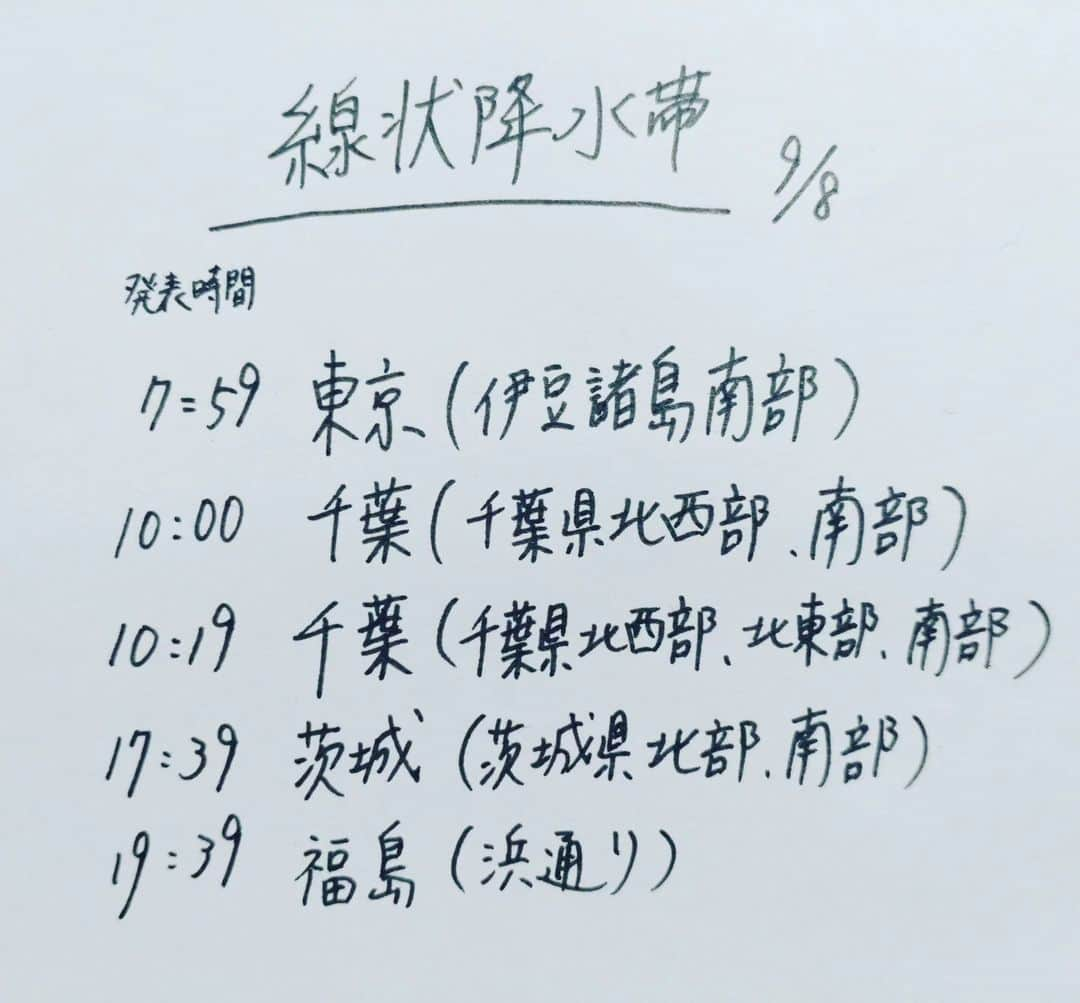 線状降水帯 9/8
発表時間
7:59 東京(伊豆諸島南部)
10:00 千葉(千葉県北西部、南部)
10:19 千葉(千葉県北西部、北東部、南部)
17:39 茨城(茨城県北部、南部)
19:39 福島(浜通り)